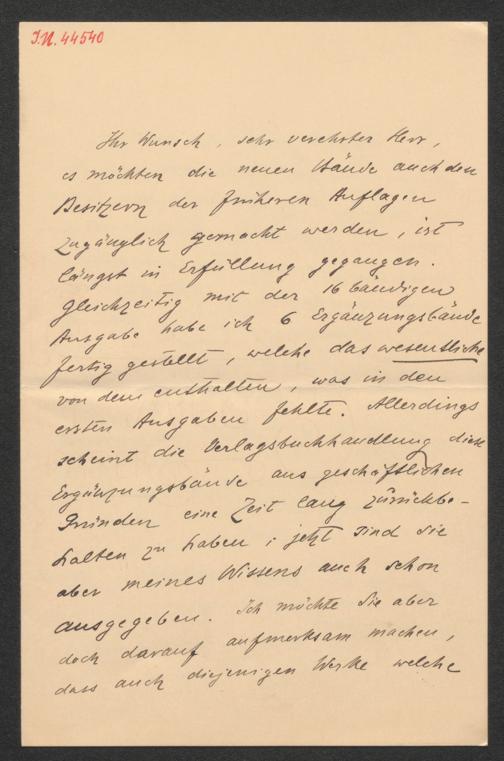 J.N. 44540
Ihr Wunsch, sehr verehrter Herr,
es möchten die neuen Bände auch den
Besitzern der früheren Auflagen
zugänglich gemacht werden, ist
längst in Erfüllung gegangen.
Gleichzeitig mit der 16 bändigen
Ausgabe habe ich 6 Ergänzungsbände
fertig gestellt, welche das wesentliche
von dem enthalten, was in den
ersten Ausgaben fehlte. Allerdings
scheint die Verlagsbuchhandlung diese
Ergänzungsbände aus geschäftlichen
Gründen eine Zeit lang zurückbe-
halten zu haben; jetzt sind sie
aber meines Wissens auch schon
ausgegeben. Ich möchte Sie aber
doch darauf aufmerksam machen,
dass auch diejenigen Werke welche